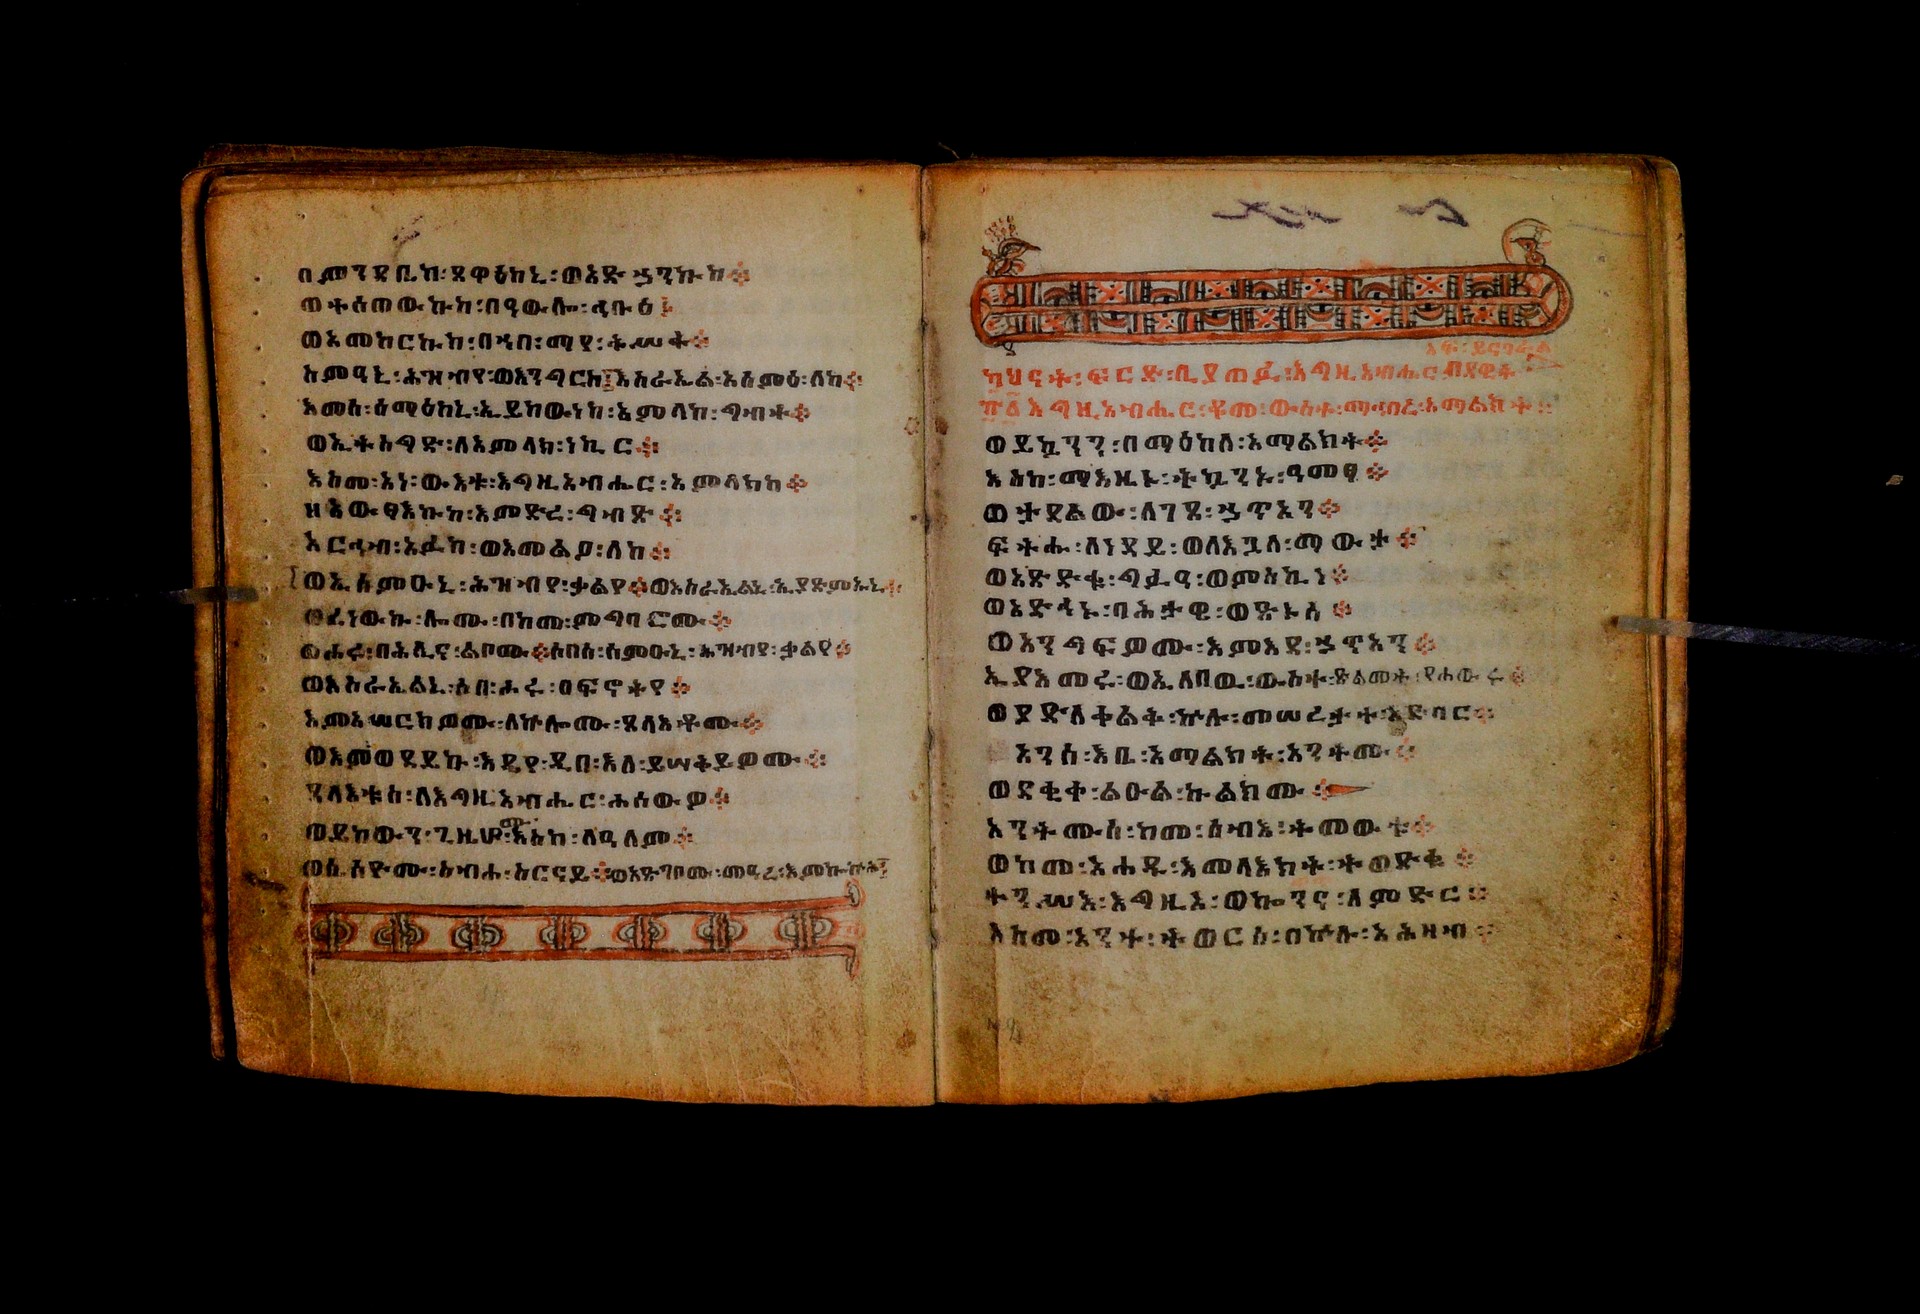 በምንዳቤከ፡ጸዋዕከኒ፡ወአድኃንኩከ፨
ወተሰጠውኩከ፡በዓውሎ፡ዱቡዕ፨
ወአመከርኩከ፡በኀበ፡ማየ፡ቅሥት፨
ስምዓኒ፡ሕዝብየ፡ወእንግርከ፡እስራኤል፡አስምዕ፡ለከ፨
እመሰ፡ሰማዕከኒ፡ኢይከውነከ፡አምላከ፡ግብት፨
ወኢትስግድ፡ለአምላክ፡ነኪር፨
እስመ፡አነ፡ውእቱ፡እግዚአብሔር፡አምላክከ፨
ዘአውፃእኩከ፡እምድረ፡ግብጽ፨
አርኅብ፡አፉከ፡ወእመልዖ፡ለከ፨
ወኢሰምዑኒ፡ሕዝብየ፡ቃልየ፨ወእስራኤልኒ፡ኢያድምኡኒ፨
ወፈነውኩ፡ሎሙ፡በከመ፡ምግባሮሙ፨
ወሖሩ፡በሕሊና፡ልቦሙ፨ሶበሰ፡ሰምዑኒ፡ሕዝብየ፡ቃልየ፨
ወእስራኤልኒ፡ሶበ፡ሖሩ፡በፍኖትየ፨
እምአሣርክዎሙ፡ለኵሎሙ፡ጸላእቶሙ፨
ወእምወደይኩ፡እዴየ፡ዲበ፡እለ፡ይሣቅይዎሙ፨
ጸላእቱሰ፡ለእግዚአብሔር፡ሐሰውዎ፨
ወይከውን፡ጊዜሆሙ፡እስከ፡ለዓለም፨
ወሴሰዮሙ፡ስብሐ፡ስርናይ፨ወአጽገቦሙ፡መዓረ፡እምኰኵሕ፨
ካህናት፡ፍርድ፡ቢያጠፉ፡እግዚአብሔር፡
፹፩እግዚአብሔር፡ቆመ፡ውስተ፡ማኅበረ፡አማልክት፨
ወይኴንን፡በማዕከለ፡አማልክት፨
እስከ፡ማእዜኑ፡ትኴንኑ፡ዓመፃ፨
ወታደልው፡ለገጸ፡ኃጥአን፨
ፍትሑ፡ለነዳይ፡ወለእጓለ፡ማውታ፨
ወአጽድቁ፡ግፉዓ፡ወምስኪነ፨
ወአድኅኑ፡በሕታዌ፡ወጽኑሰ፨
ወአንግፍዎሙ፡እምእደ፡ኃጥአን፨
ኢያእመሩ፡ወኢለበዉ፡ውስተ፡ጽልመት፡የሐውሩ፨
ወያድለቀልቅ፡ኵሉ፡መሠረታተ፡ምድር፨
አንሰ፡እቤ፡አማልክት፡አንትሙ፨
ወደቂቀ፡ልዑል፡ኩልክሙ፨
አንትሙሰ፡ከመ፡ሰብእ፡ትመውቱ፨
ወከመ፡አሐዱ፡እመላእክት፡ትወድቁ፨
ተንሥእ፡እግዚኦ፡ወኰንና፡ለምድር፨
እስመ፡አንተ፡ትወርስ፡በኵሉ፡አሕዛብ፨